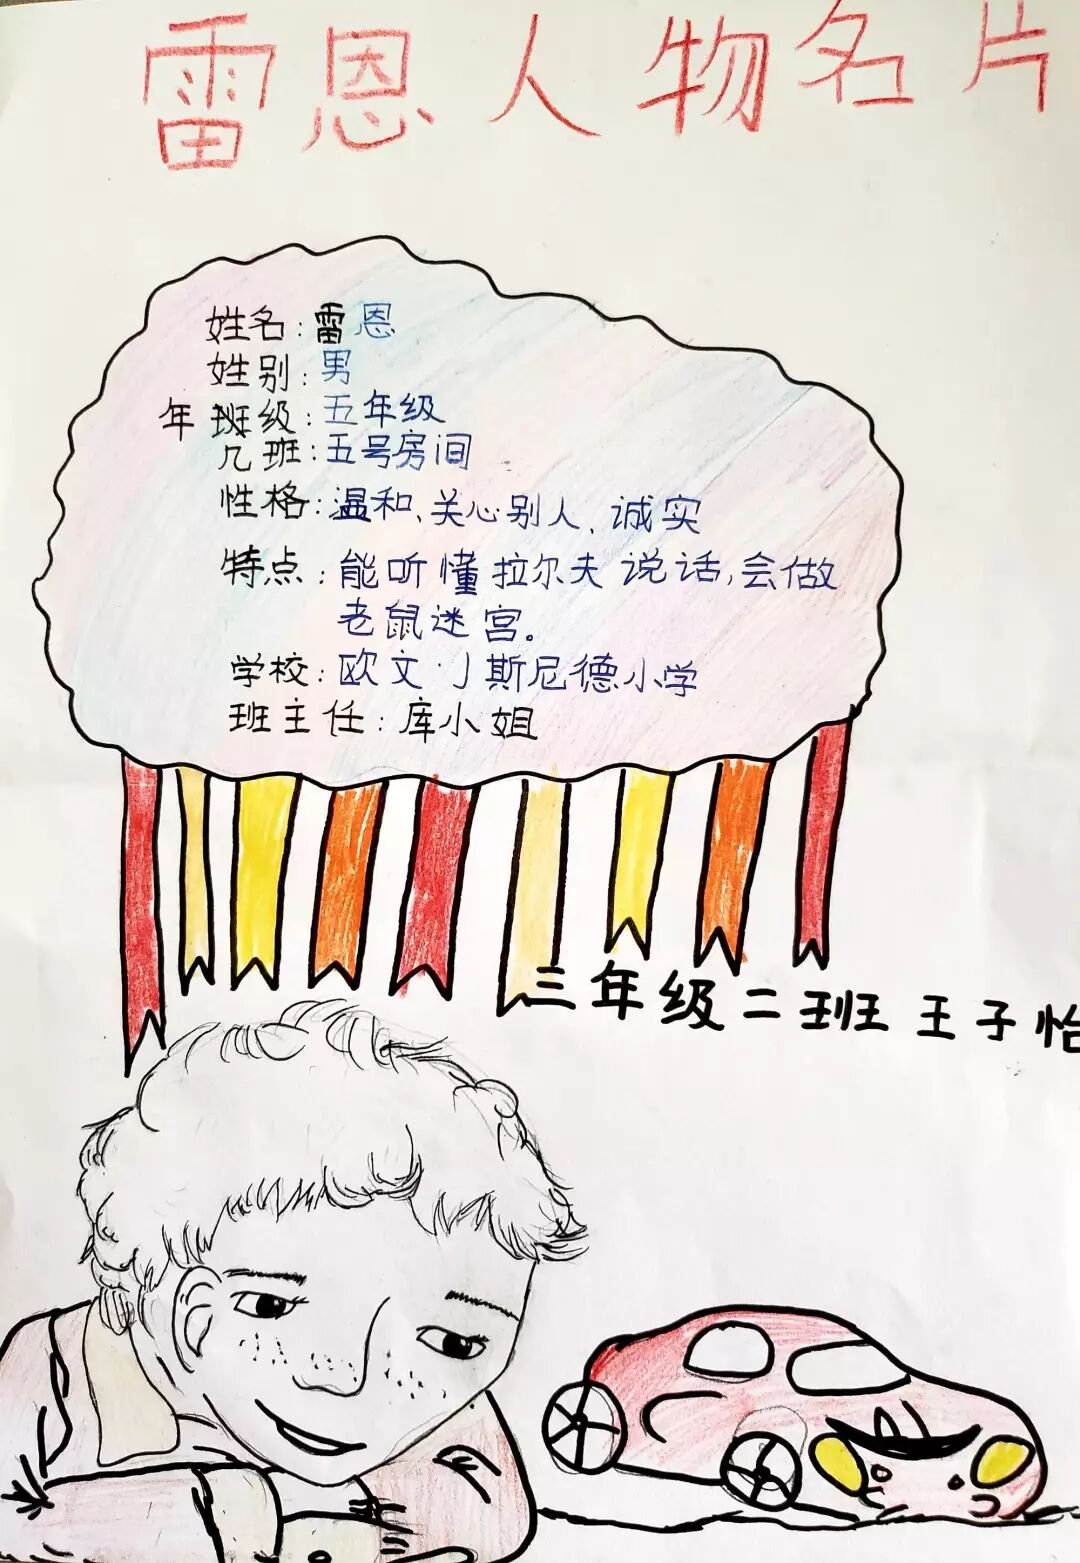 雷恩人物名片
姓名:雷恩
姓别:男
年班级:五年级
几班:五号房间
性格:温和、关心别人、诚实
特点:能听懂拉尔夫说话,会做
老鼠迷宫。
学校:欧文·J斯尼德小学
班主任:库小姐
三年级二班 王子怡